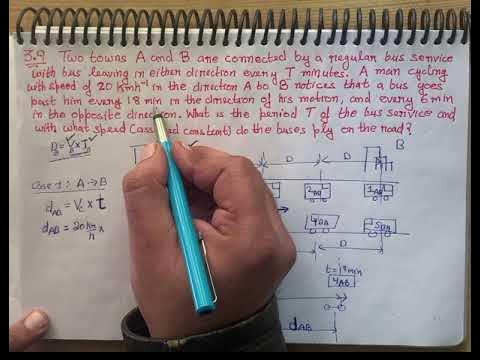 3.9 Two towns A and B are connected by a regular bus service
with bus leaving in either direction every T minutes. A man cycling
with speed of 20 Kmh⁻¹ in the direction A to B notices that a bus goes
past him every 18 min in the direction of his motion, and every 6 min
in the opposite direction. What is the period T of the bus service and
with what speed (assumed constant) do the buses ply on the road?
B
D D
Case 1: A→B
d_AB = V_c × t
d_AB = 20 km/h ×
D
t=18min
4AB
d_AB